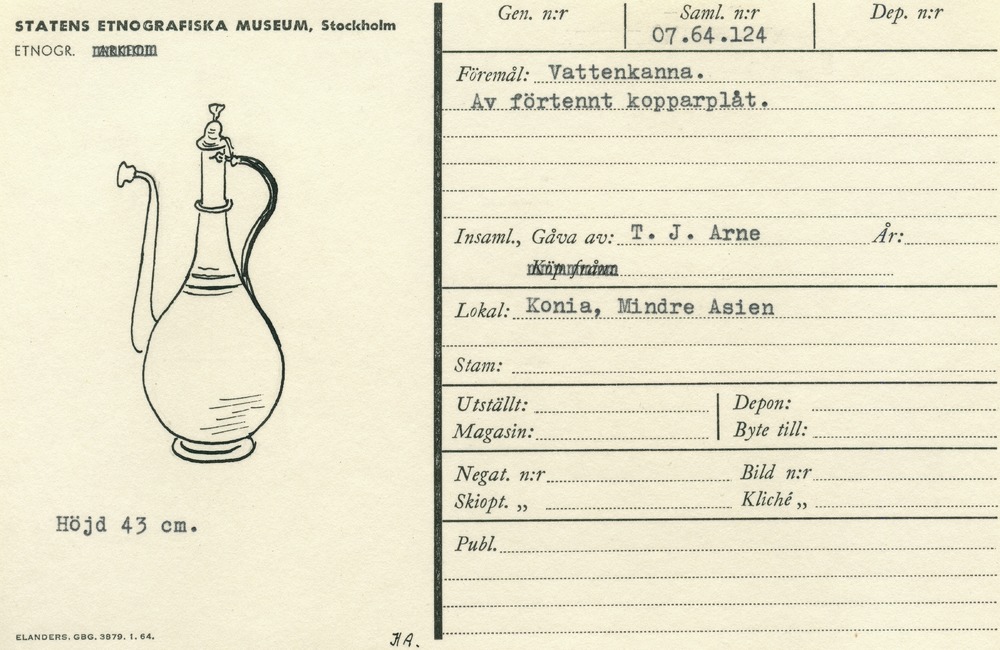 STATENS ETNOGRAFISKA MUSEUM, Stockholm
ETNOGR.
Höjd 43 cm.
ELANDERS. GBG. 3879. 1. 64.
HA.
Gen. n:r Saml. n:r Dep. n:r
07.64.124
Föremål: Vattenkanna.
Av förtennt kopparplåt.
Insaml., Gåva av: T. J. Arne År:
Köp från
Lokal: Konia, Mindre Asien
Stam:
Utställt: Depon:
Magasin: Byte till:
Negat. n:r Bild n:r
Skiopt. „ Kliché „
Publ.